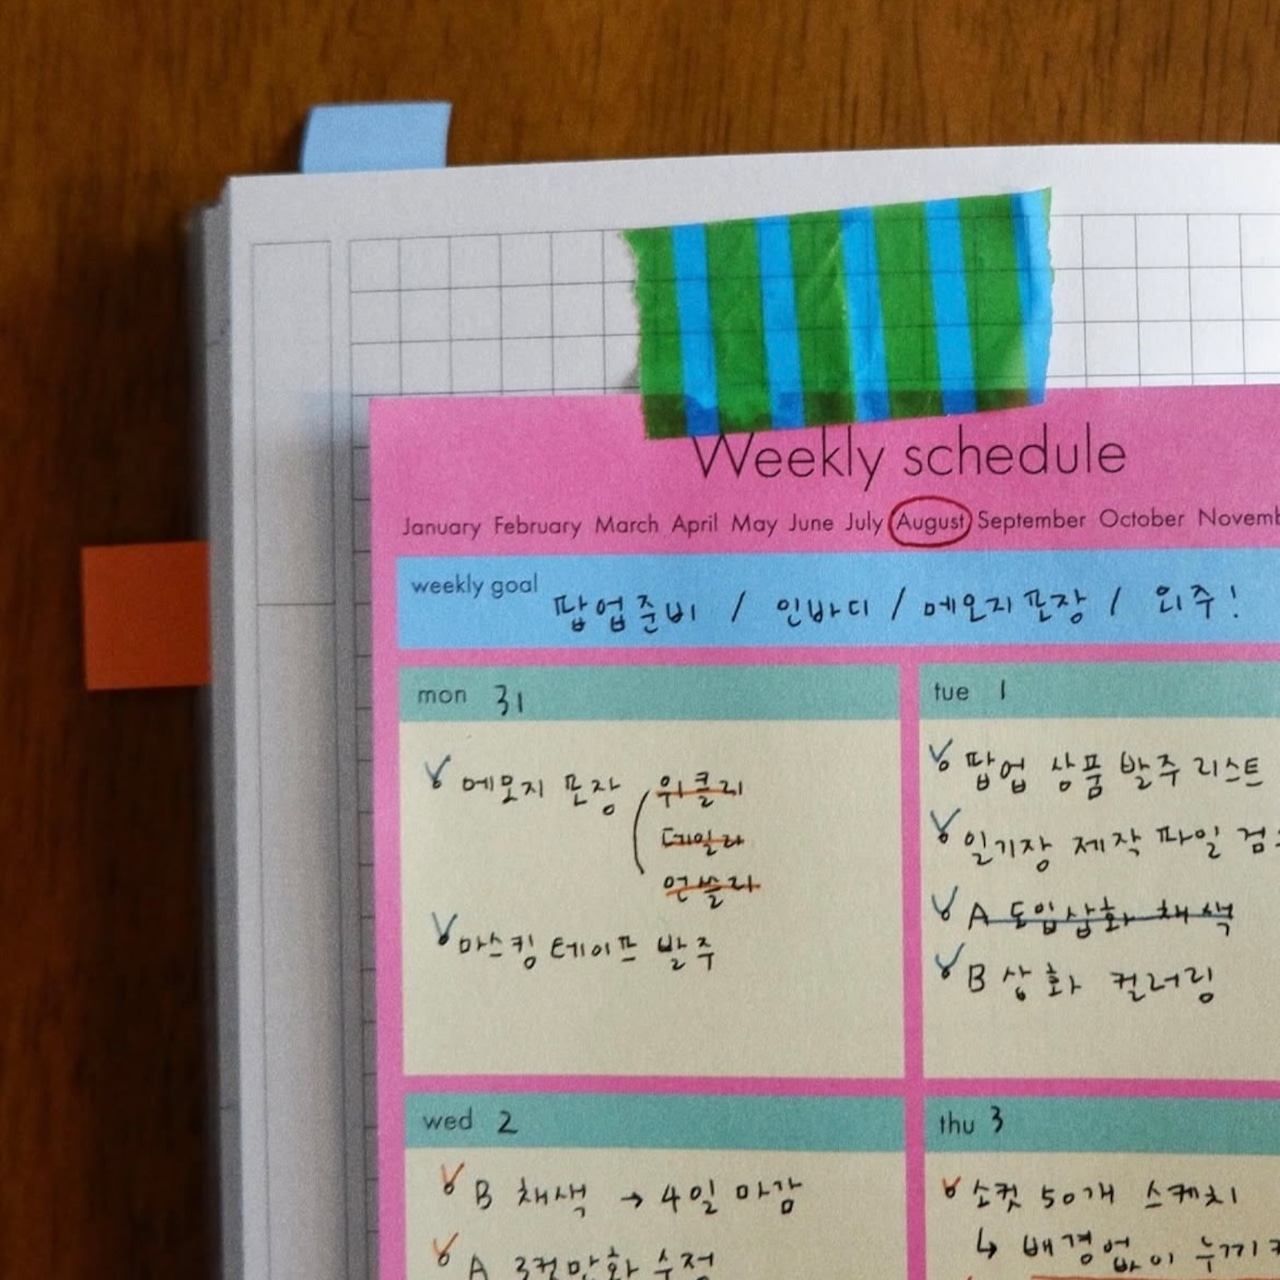 Weekly schedule
January February March April May June July August September October Novemb
weekly goal 팝업준비 / 인바디 / 메모지포장 / 외주!
mon 31
메모지 포장 위클리
데일리
먼쓸리
마스킹 테이프 발주
tue 1
팝업 상품 발주 리스트
일기장 제작 파일 검
A 도입삽화 채색
B 삽화 컬러링
wed 2
B 채색 → 4일 마감
A 3컷만화 수정
thu 3
소컷 50개 스케치
↳ 배경없이 누끼